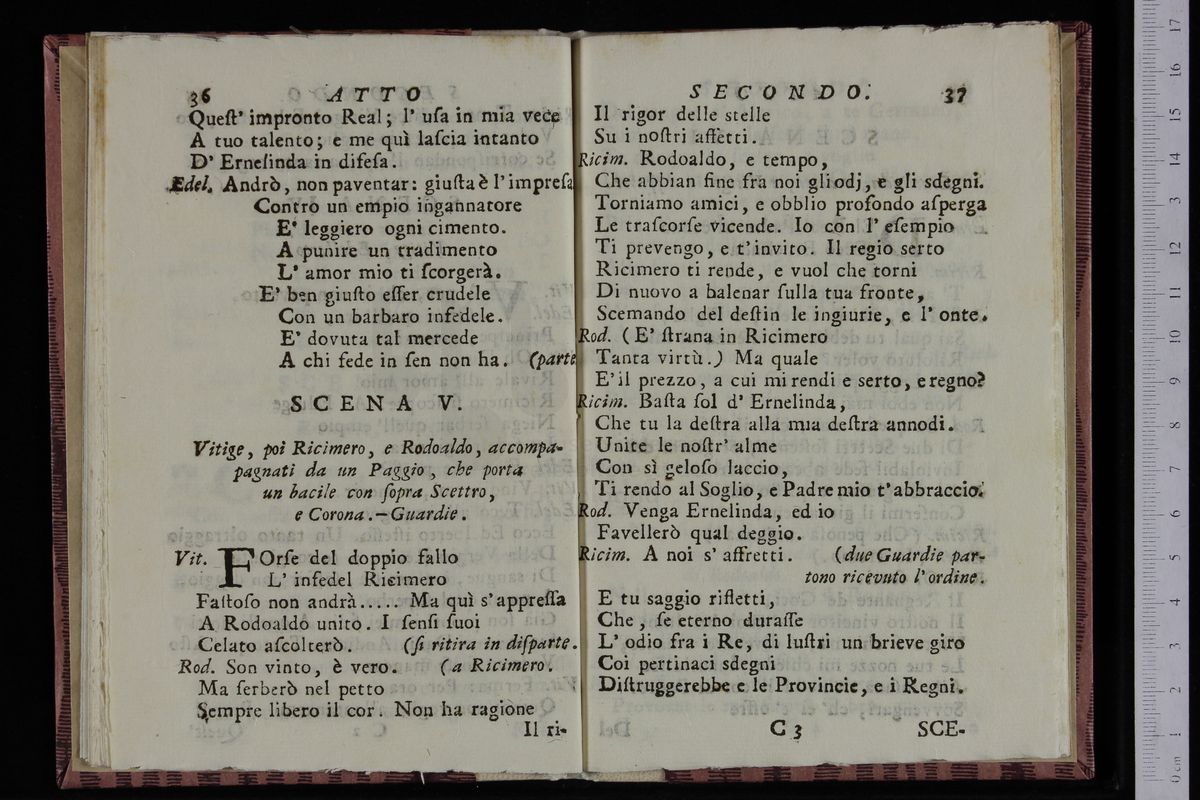 36 ATTO
Queſt' impronto Real; l' uſa in mia vece
A tuo talento; e me quì laſcia intanto
D' Erneſinda in difeſa.
Edel. Andrò, non paventar: giuſta è l'impreſa
Contro un empio ingannatore
E' leggiero ogni cimento.
A punire un tradimento
L' amor mio ti ſcorgerà.
E' ben giuſto eſſer crudele
Con un barbaro infedele.
E' dovuta tal mercede
A chi fede in ſen non ha. (parte
SCENA V.
Vitige, poi Ricimero, e Rodoaldo, accompa-
pagnati da un Paggio, che porta
un bacile con ſopra Scettro,
e Corona.—Guardie.
Vit. FOrſe del doppio fallo
L' infedel Ricimero
Faſtoſo non andrà..... Ma quì s'appreſſa
A Rodoaldo unito. I ſenſi ſuoi
Celato aſcolterò. (ſi ritira in diſparte.
Rod. Son vinto, è vero. (a Ricimero.
Ma ſerberò nel petto
Sempre libero il cor. Non ha ragione
Il ri-
SECONDO. 37
Il rigor delle stelle
Su i noſtri affetti.
Ricim. Rodoaldo, e tempo,
Che abbian fine fra noi gli odj, e gli sdegni.
Torniamo amici, e obblio profondo aſperga
Le traſcorſe vicende. Io con l' eſempio
Ti prevengo, e t'invito. Il regio serto
Ricimero ti rende, e vuol che torni
Di nuovo a balenar ſulla tua fronte,
Scemando del deſtin le ingiurie, e l' onte.
Rod. (E' ſtrana in Ricimero
Tanta virtù.) Ma quale
E' il prezzo, a cui mi rendi e serto, e regno?
Ricim. Baſta ſol d' Ernelinda,
Che tu la deſtra alla mia deſtra annodi.
Unite le noſtr' alme
Con sì geloſo laccio,
Ti rendo al Soglio, e Padre mio t'abbraccio.
Rod. Venga Ernelinda, ed io
Favellerò qual deggio.
Ricim. A noi s' affretti. (due Guardie par-
tono ricevuto l'ordine.
E tu saggio rifletti,
Che, ſe eterno duraſſe
L' odio fra i Re, di luſtri un brieve giro
Coi pertinaci sdegni
Diſtruggerebbe e le Provincie, e i Regni.
C 3 SCE-